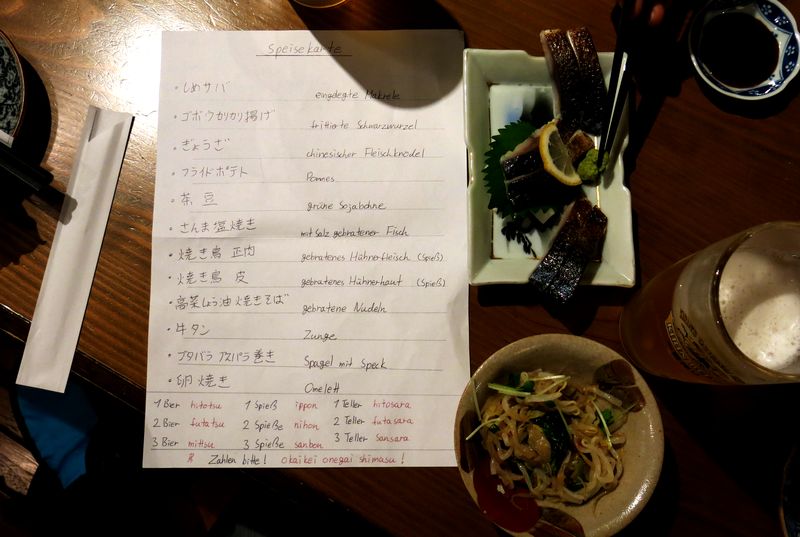 Speisekarte
・しめサバ eingelegte Makrele
・ゴボウカリカリ揚げ frittierte Schwarzwurzel
・ぎょうざ chinesischer Fleischknödel
・フライドポテト Pommes
・茶豆 grüne Sojabohne
・さんま塩焼き mit Salz gebratener Fisch
・焼き鳥 正肉 gebratenes Hühnerfleisch (Spieß)
・焼き鳥 皮 gebratenes Hühnerhaut (Spieß)
・高菜しょう油焼きそば gebratene Nudeln
・牛タン Zunge
・ブタバラ アスパラ巻き Spagel mit Speck
・卵焼き Omelett
1 Bier hitotsu 1 Spieß ippon 1 Teller hitosara
2 Bier futatsu 2 Spieße nihon 2 Teller futasara
3 Bier mittsu 3 Spieße sanbon 3 Teller sansara
Zahlen bitte! okaikei onegai shimasu!